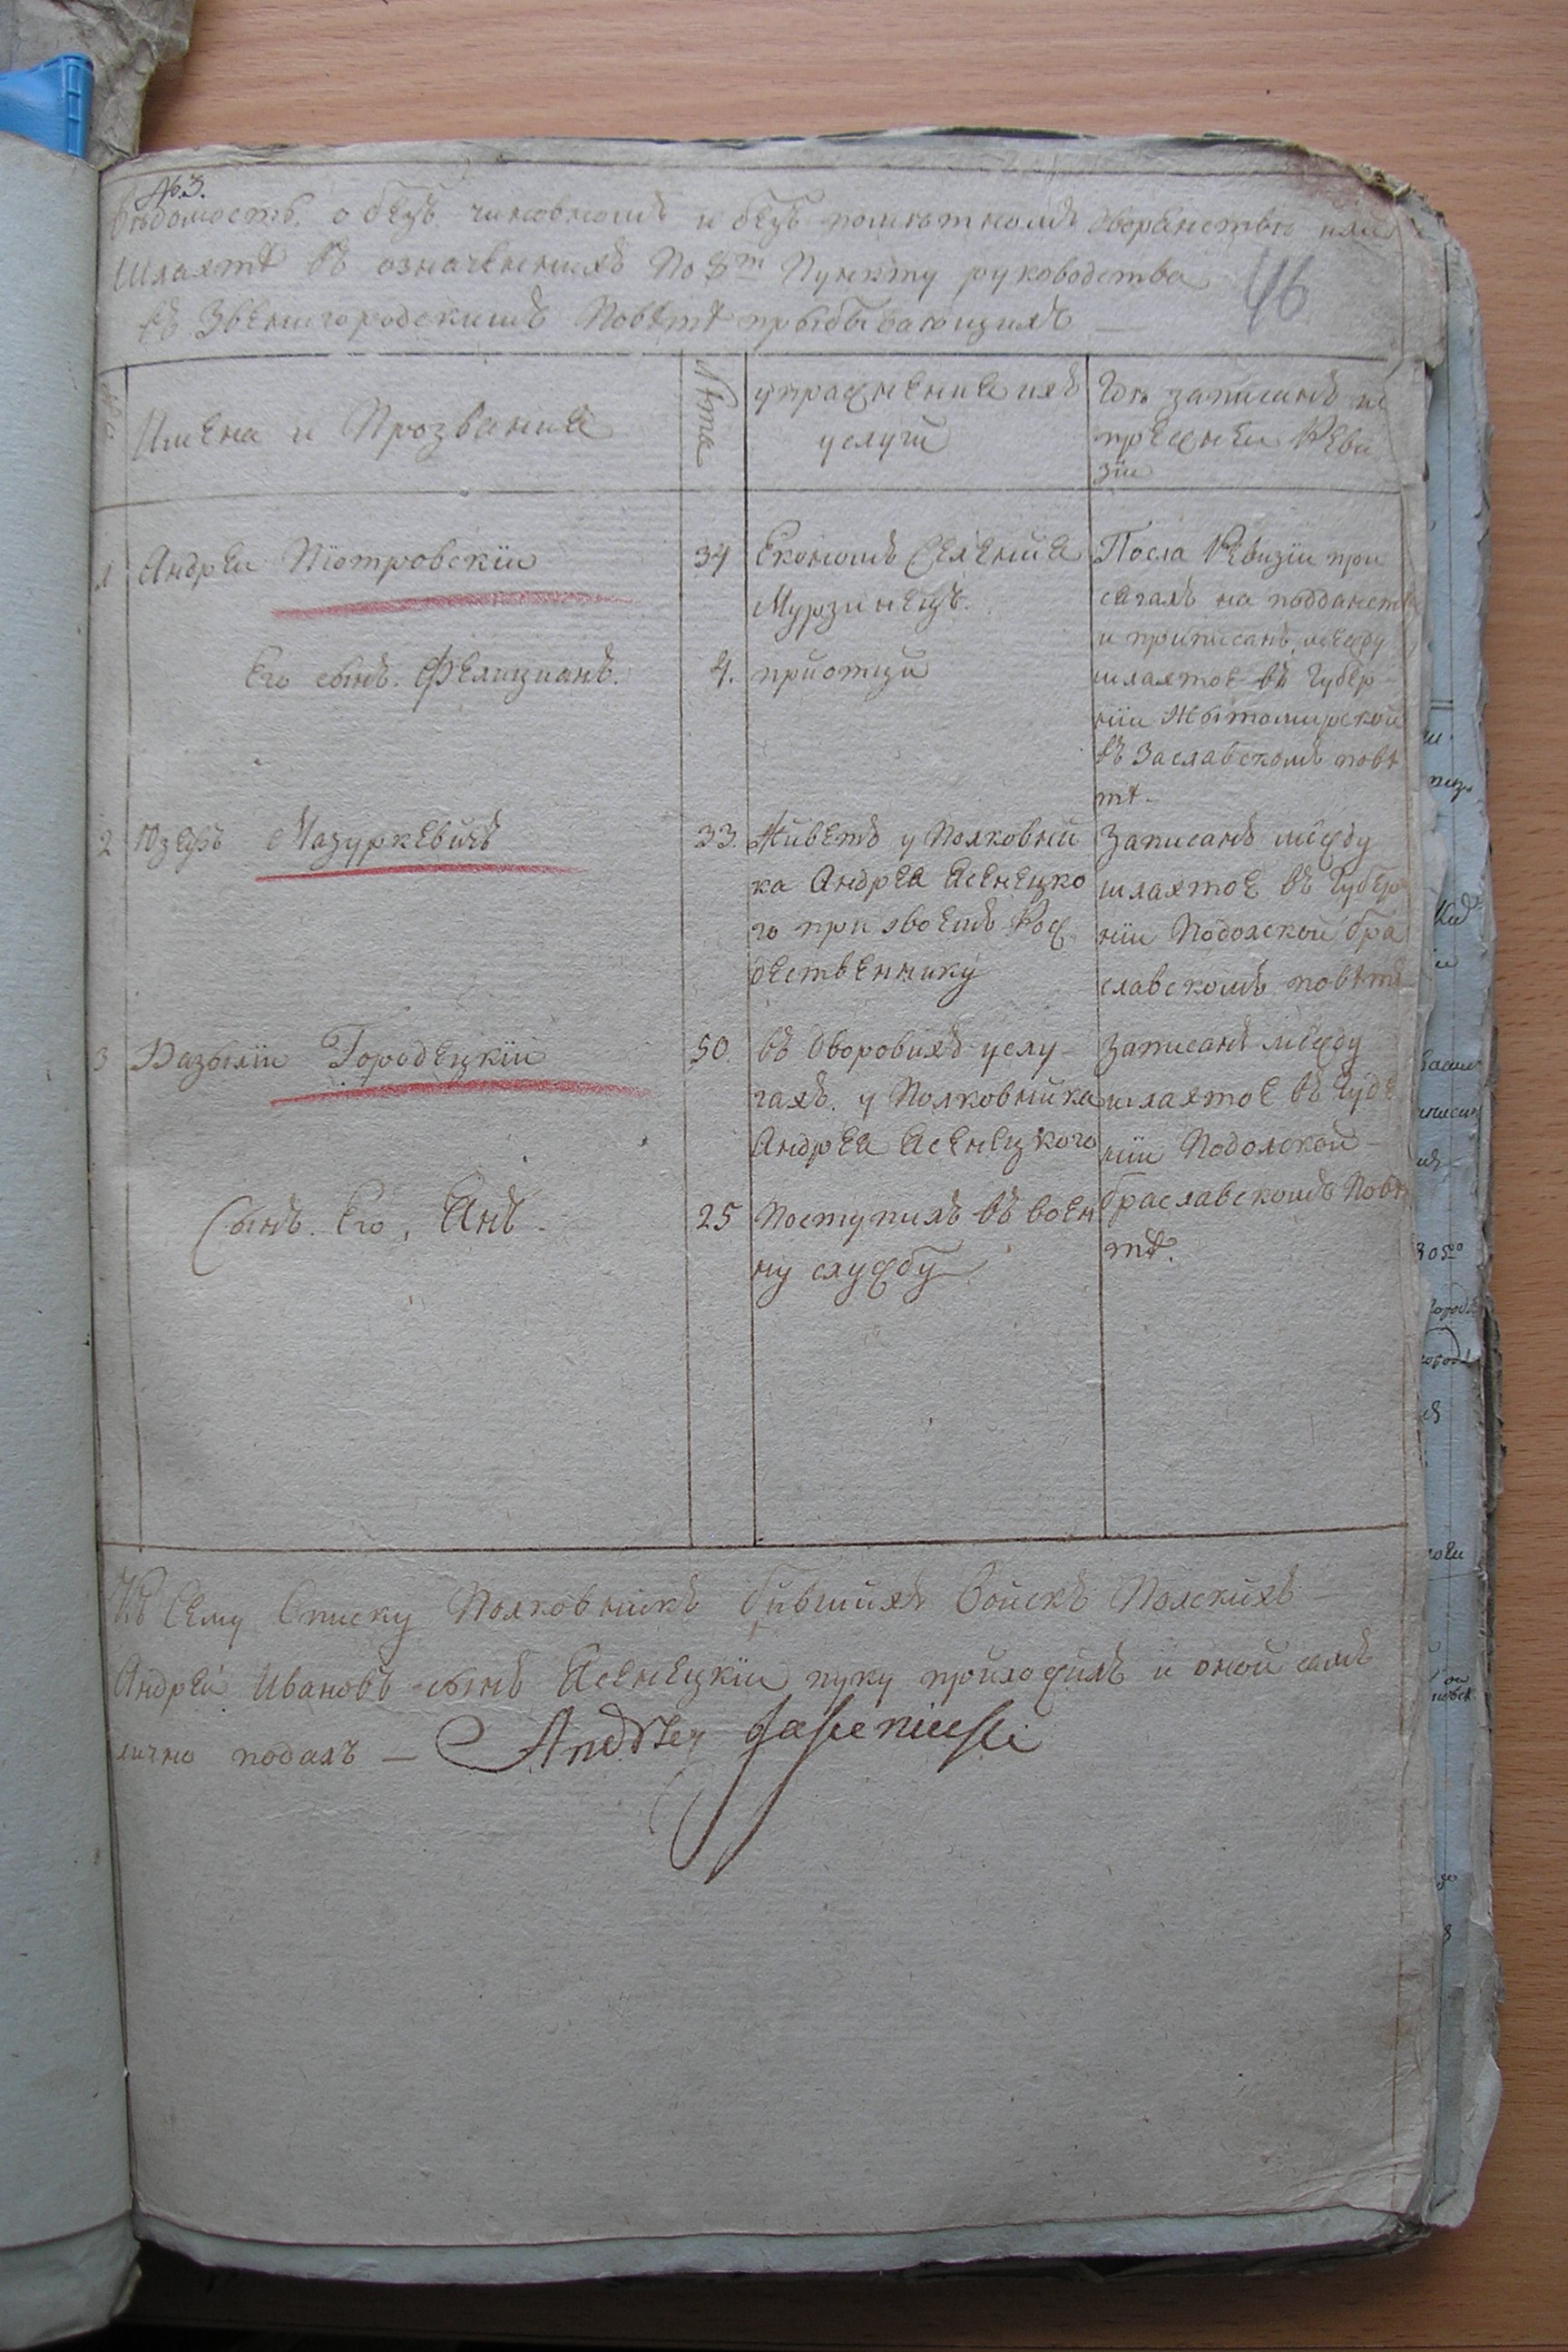 № 3.
Ведомость о безъ чиновномъ и безъ поместномъ дворянстве или
Шляхтѣ въ означениихъ По 8м Пункту руководства
46
въ Звенигородскимъ Повѣтѣ прыбывающихъ —
Имена и Прозвания
Лѣта
упражнение ихъ
услуги
Где записанъ и
прежнеи Реви
зїи
1 Андреи Пїотровскїи
34
Економъ Селения
Мурзинецъ.
Посла Ревизїи при
сягалъ на подданст
и приписанъ между
шляхтое въ Губер
нїи Жытомирской
въ Заславскомъ повѣ
тѣ
Его сынъ. Фелицианъ.
4.
при отци
2 Юзефъ Мазуркевичъ
33.
Живетъ у Полковни
ка Андрея Ясенецко
го при своемъ Рож
дественнику
Записанъ между
шляхтое въ Губер
нїи Подолской бра
славскомъ повѣтѣ
3 Базылїи Городецкїи
50.
въ дворовихъ услу
гахъ. у Полковника
Андрея Ясенецкого
Записанъ между
шляхтое въ Губе
нїи Подолской
браславскомъ Повѣ
тѣ.
Сынъ Его, Янъ
25
Поступилъ въ воен
ну службу
Къ Сему Списку Полковникъ бывшихъ Войскъ Полскихъ
Андрей Ивановъ сынъ Ясенецкїи руку приложилъ и оной самъ
лично подалъ — Andrzey Jasieniecki